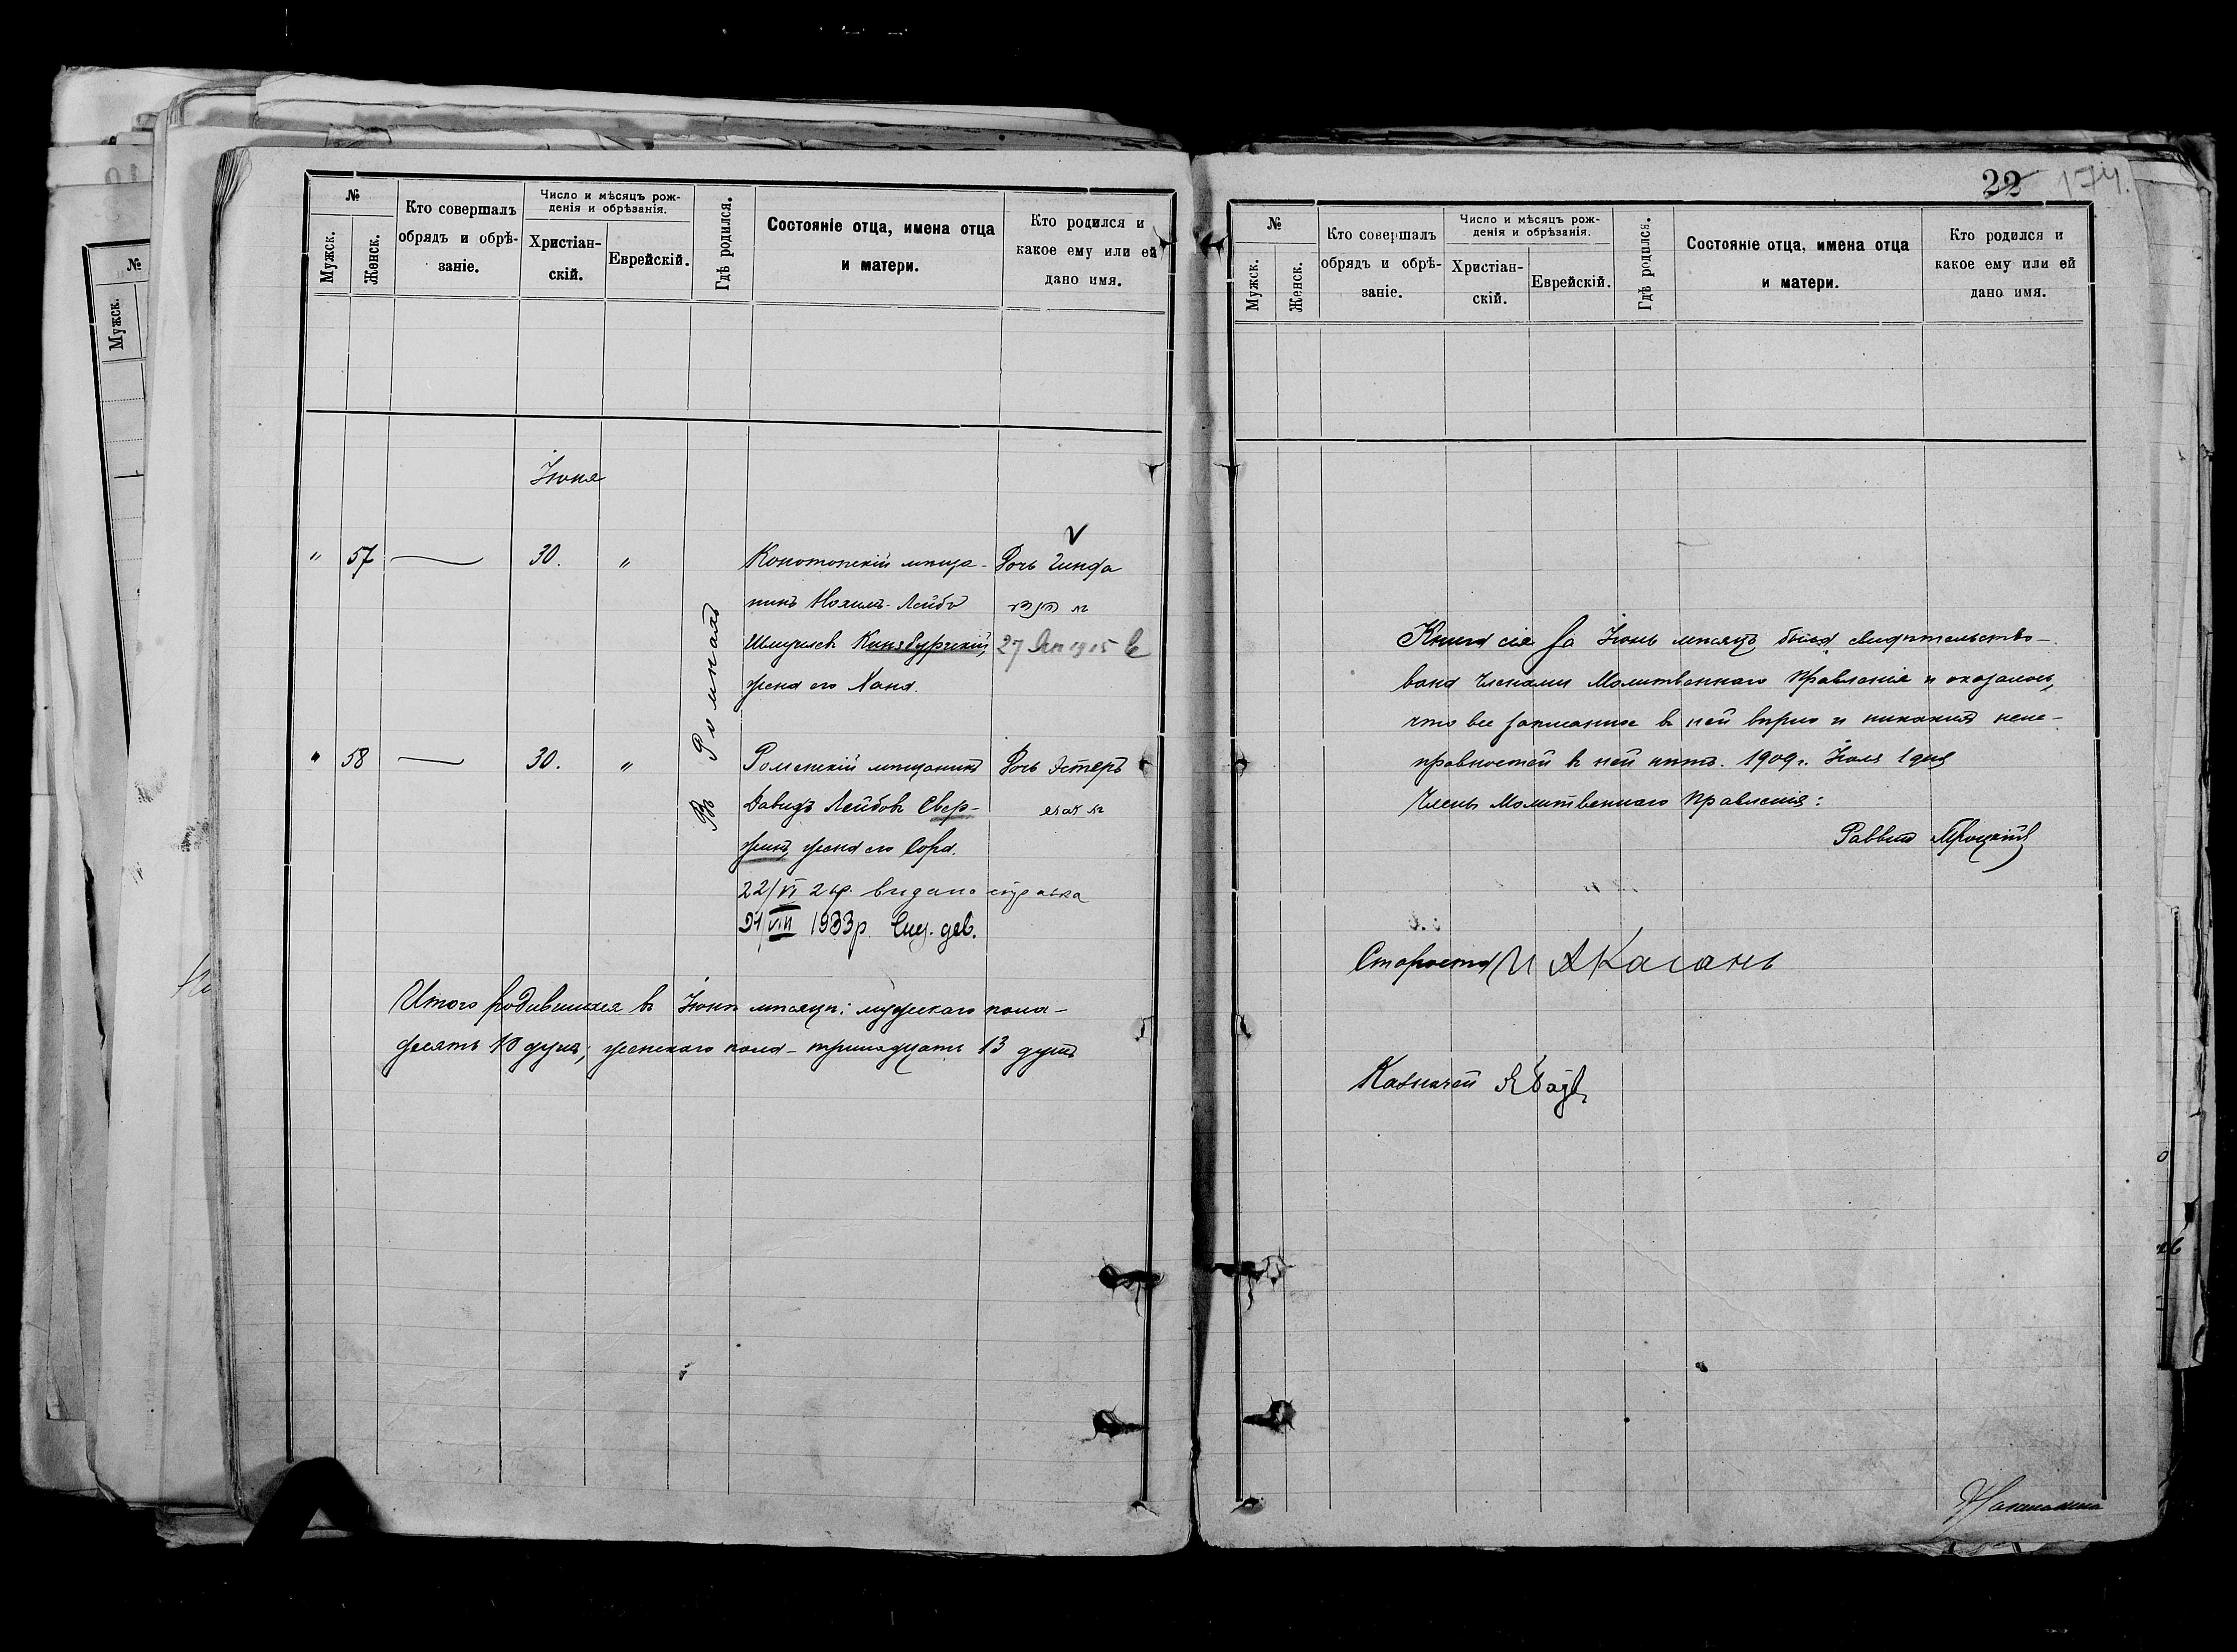 №
Мужск.
Женск.
Кто совершалъ
обрядъ и обрѣ-
заніе.
Число и мѣсяцъ рож-
денія и обрѣзанія.
Христіан-
скій.
Еврейскій.
Гдѣ родился.
Состояніе отца, имена отца
и матери.
Кто родился и
какое ему или ей
дано имя.
Іюня
" 57 30. " Конотопскій мѣща- Дочь Гинда
нинъ Нохимъ-Лейбъ
27 1915
жена его Хана.
Въ Ромнахъ
" 58 30. " Роменскій мѣщанинъ Дочь Эстеръ
Давидъ Лейбовъ Свер-
жена его Сора.
22/VI 2 р. видана справка
21/VIII 1933р.
Итого родившихся въ Іюнѣ мѣсяцѣ: мужскаго пола-
десять 10 душъ; женскаго пола-тринадцать 13 душъ
№
Мужск.
22 174.
№
Мужск.
Женск.
Кто совершалъ
обрядъ и обрѣ-
заніе.
Число и мѣсяцъ рож-
денія и обрѣзанія.
Христіан-
скій.
Еврейскій.
Гдѣ родился.
Состояніе отца, имена отца
и матери.
Кто родился и
какое ему или ей
дано имя.
Книга сія за Іюнь мѣсяцъ была свидѣтельство-
вана Членами Молитвеннаго Правленія и оказалось,
что все записанное въ ней вѣрно и никакихъ неис-
правностей въ ней нѣтъ. 1909 г. Іюля 1 дня
Члены Молитвеннаго Правленія:
Раввинъ Троцкій
Староста И А Каганъ
Казначей